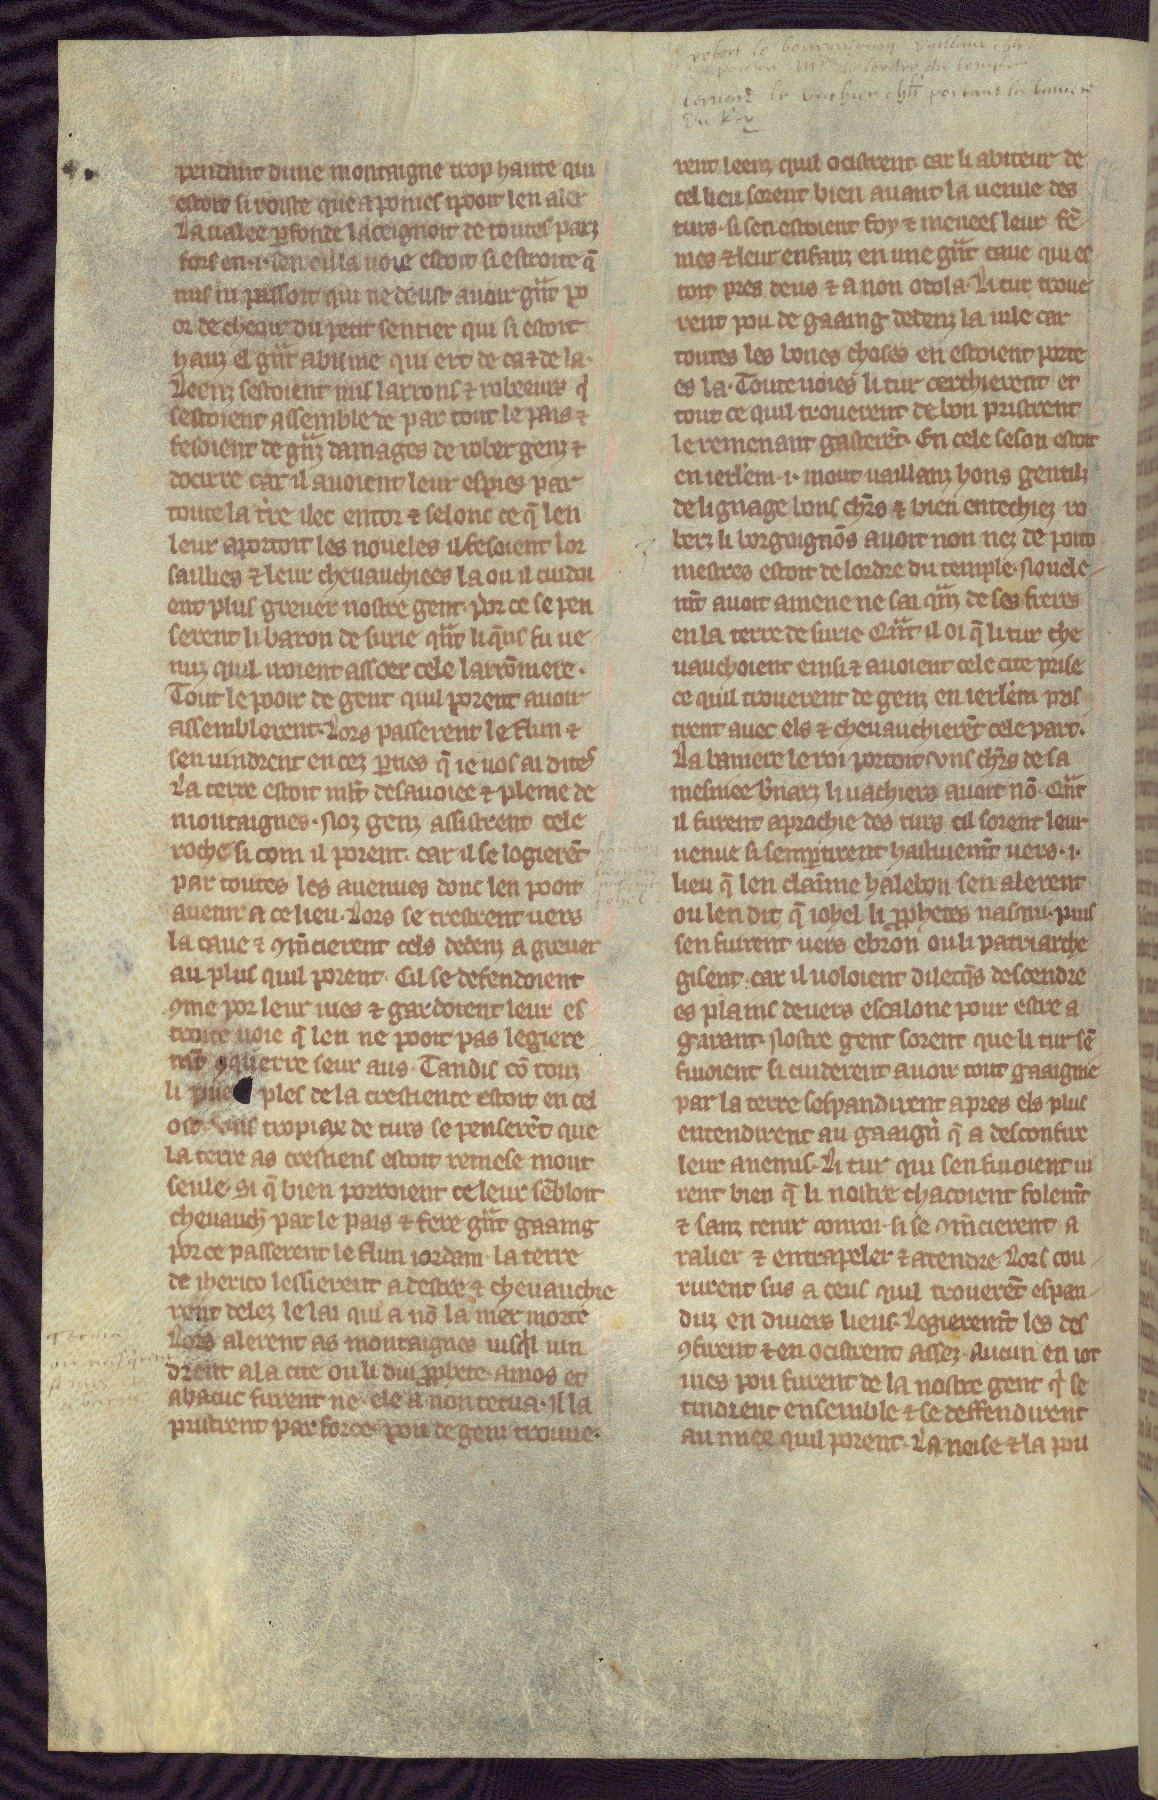 robert le bourguignon vaillant
mr de lordre du temple
bernard le vachier chlr portant la baniere
du Roy
pendant dune montaigne trop haute qui
estoit si roiste que a poines i pooit len aler
La valee ꝑfonde la ceignoit de toutes parz
fors en .i. sen cil la voie estoit si estroite q̃
nus ni passoit qui ne deust avoir gñt po
or de cheoir du petit sentier qui si estoit
hauz el gñt abisme qui ert de ca ⁊ de la.
Leenz sestoient mis larrons ⁊ robeeurs q̃
sestoient assemble de par tout le pais ⁊
fesoient de gñz damages de rober genz ⁊
docirre car il avoient leur espies par
toute la tr̃e ilec entor ⁊ selonc ce q̃ len
leur aportoit les noveles il fesoient lor
saillies ⁊ leur chevauchiees la ou il cuidoi
ent plus grever nostre gent. Por ce se pen
serent li baron de surie qñt li q̃ns fu ve
nuz quil iroient asseer cele larronniere.
Tout le pooir de gent quil porent avoir
assemblerent. Lors passerent le flun ⁊
sen vindrent en cez ꝑties q̃ ie vos ai dites
La terre estoit mlt̃ desavoiee ⁊ pleine de
montaignes. Noz genz assistrent cele
roche si com il porent. car il se logierẽt
par toutes les avenues donc len pooit
avenir a ce lieu. Lors se trestrent vers
la cave ⁊ ꝯmẽcierent cels dedenz a grever
au plus quil porent. Cil se defendoient
ꝯme por leur vies ⁊ gardoient leur es
troite voie q̃ len ne pooit pas legiere
mẽt ꝯquerre seur aus. Tandis cõ touz
li pue ples de la crestiente estoit en cel
ost uns tropiax de turs se penserẽt que
la terre as crestiens estoit remese mout
seule. Si q̃ bien porroient ce leur sẽbloit
chevauch̃ par le pais ⁊ fere gñt gaaing
por ce passerent le flun iordain. la terre
de iherico lessierent a destre ⁊ chevauchie
rent delez le lai qui a nõ la mer morte
Lors alerent as montaignes iusq̃l vin
drent a la cite ou li dui ꝓphete amos et
abacuc furent ne. ele a non tecua. il la
pristrent par force. pou de genz trouve.
rent leenz quil ocistrent car li abiteur de
cel lieu sorent bien avant la venue des
turs. si sen estoient foy ⁊ menees leur fẽ
mes ⁊ leur enfanz en une gñt cave qui es
toit pres deus ⁊ a non odola. Li tur trouve
rent pou de gaaing dedenz la vile car
toutes les bones choses en estoient porte
es la. Toutevoies li tur cerchierent et
tout ce quil trouverent de bon pristrent
le remenant gasterẽt. En cele seson estoit
en ierl̃em .i. mout vaillanz hons gentilz
de lignage bons chr̃s ⁊ bien entechiez ro
berz li borgoignõs avoit non nez de poito
mestres estoit de lordre du temple. Novele
mẽt avoit amene ne sai qñz de ses freres
en la terre de surie. Qñt il oi q̃ li tur che
vauchoient einsi ⁊ avoient cele cite prise
ce quil trouverent de genz en ierl̃em pris
trent avec els ⁊ chevauchierẽt cele part.
La baniere le roi portoit uns chr̃s de sa
mesniee b̃narz li vachiers avoit nõ. Qñt
il furent aprochie des turs cil sorent leur
venue si sempartirent hastivemẽt vers .i.
lieu q̃ len claime halebon sen alerent
ou len dit q̃ iohel li ꝓphetes nasqui. puis
sen fuirent vers ebron ou li patriarche
gisent. car il voloient dilecq̃s descendre
es plains devers escalone pour estre a
garant. Nostre gent sorent que li tur sẽ
fuioient si cuiderent avoir tout gaaignie
par la terre sespandirent apres els plus
entendirent au gaaign̄ q̃ a desconfire
leur anemis. Li tur qui sen fuioient vi
rent bien q̃ li nostre chacoient folemẽt
⁊ sanz tenir conroi. si se ꝯmẽcierent a
ralier ⁊ entrapeler ⁊ atendre. Lors cou
rurent sus a ceus quil trouverẽt espan
duz en divers lieus. Legieremẽt les des
ꝯfirent ⁊ en ocistrent assez. Aucun en iot
mes pou furent de la nostre gent q̃ se
tindrent ensemble ⁊ se deffendirent
au miex quil porent. La noise ⁊ la pou